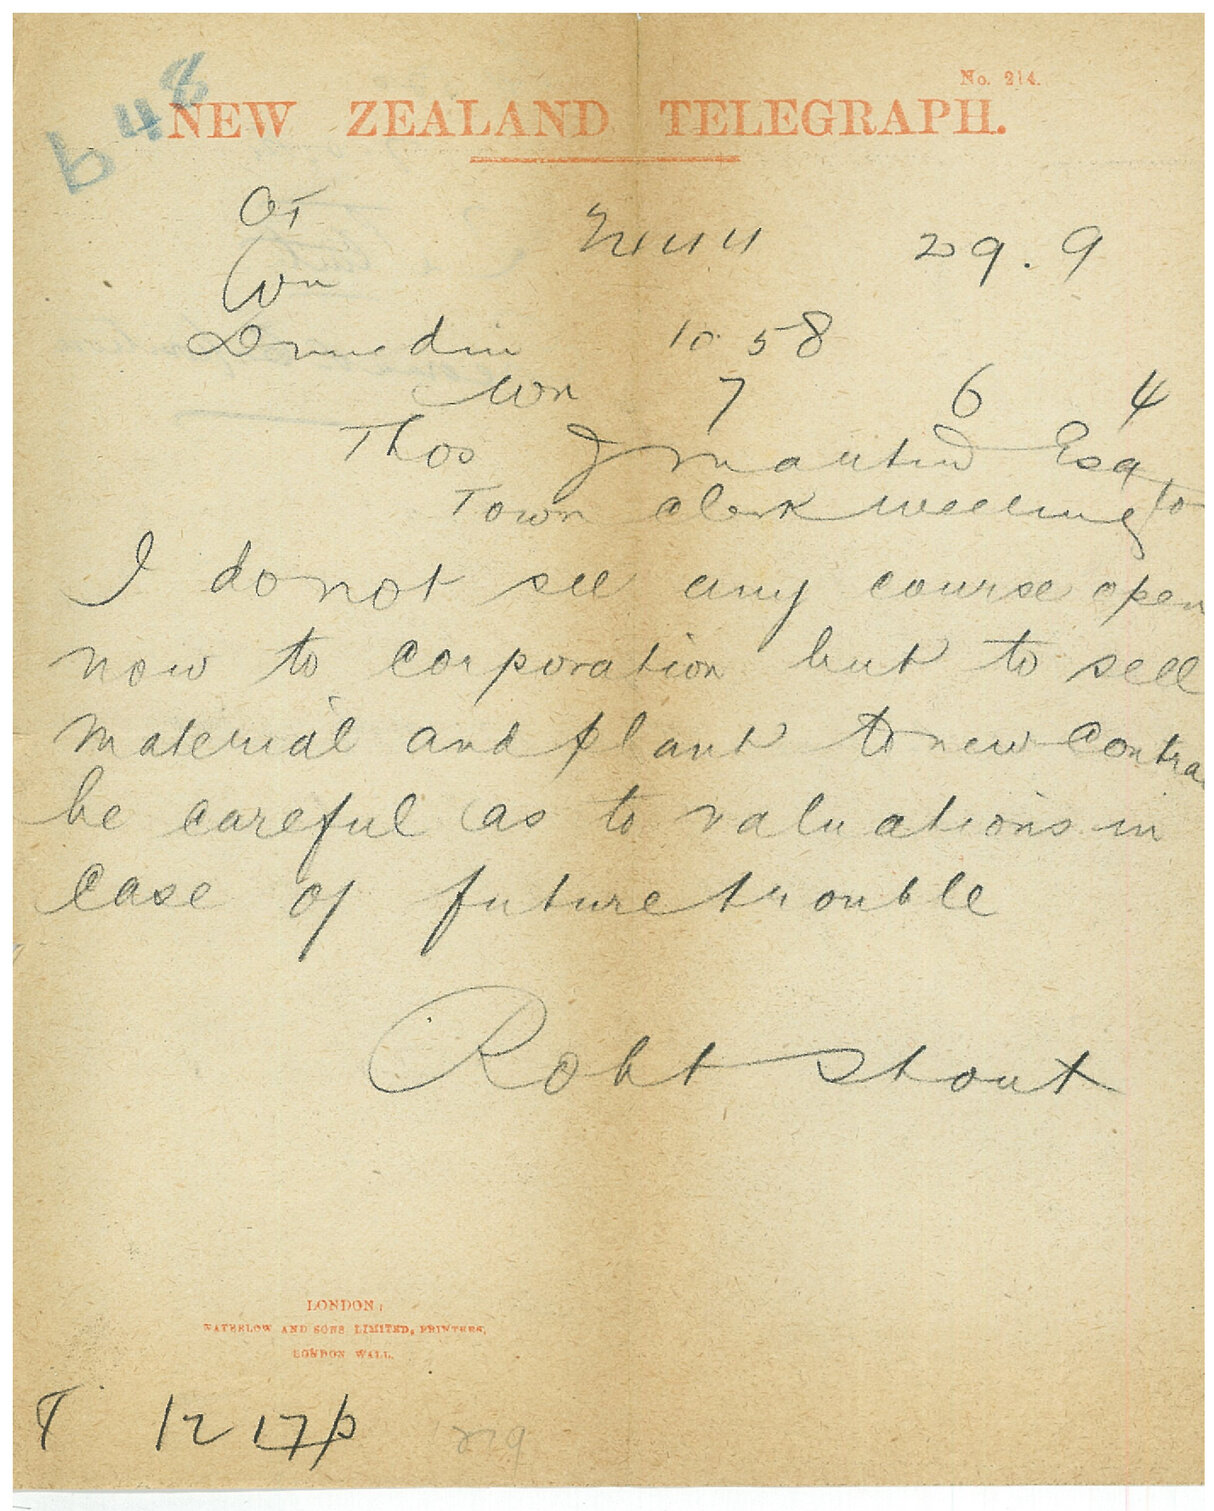 b 48
No. 214.
NEW ZEALAND TELEGRAPH.
OT
29.9
Wn
Dunedin 10 58
Wn 7 6 4
Thos J martin Esq
Town clerk welling
ton
I do not see any course open
now to corporation but to sell
material and plant to new contra
be careful as to valuations in
case of future trouble
Robt Stout
LONDON:
WATERLOW AND SONS LIMITED, PRINTERS,
LONDON WALL.
T 12 17p